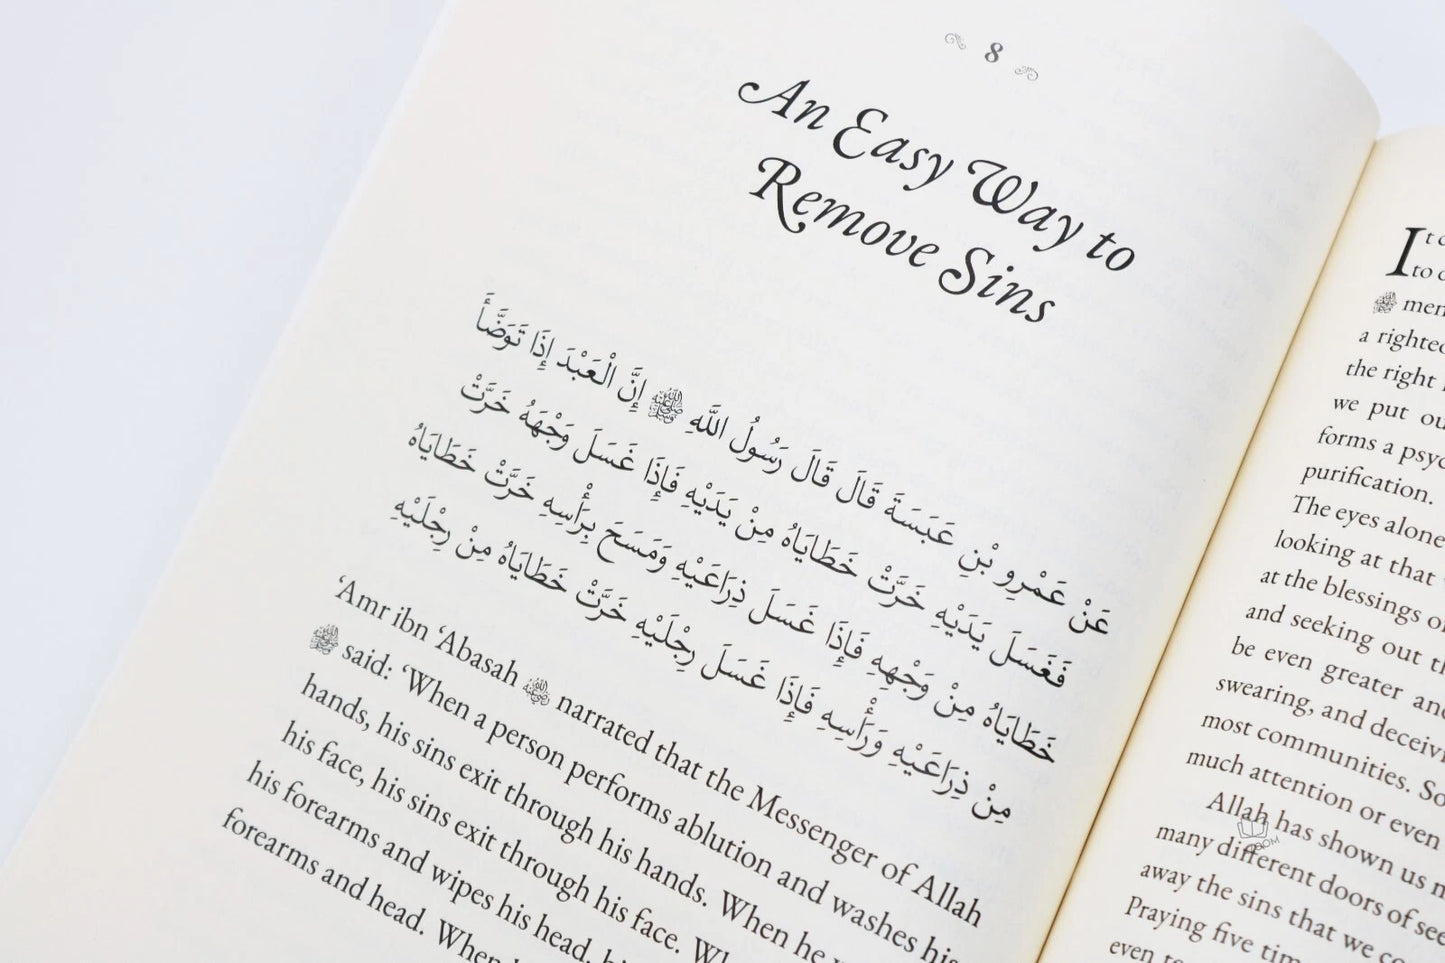 8
An Easy Way to
Remove Sins
عَنْ عَمْرِو بْنِ عَبَسَةَ قَالَ قَالَ رَسُولُ اللَّهِ ﷺ إِنَّ الْعَبْدَ إِذَا تَوَضَّأَ
فَغَسَلَ يَدَيْهِ خَرَّتْ خَطَايَاهُ مِنْ يَدَيْهِ فَإِذَا غَسَلَ وَجْهَهُ خَرَّتْ
خَطَايَاهُ مِنْ وَجْهِهِ فَإِذَا غَسَلَ ذِرَاعَيْهِ وَمَسَحَ بِرَأْسِهِ خَرَّتْ خَطَايَاهُ
مِنْ ذِرَاعَيْهِ وَرَأْسِهِ فَإِذَا غَسَلَ رِجْلَيْهِ خَرَّتْ خَطَايَاهُ مِنْ رِجْلَيْهِ
‘Amr ibn ‘Abasah narrated that the Messenger of Allah
ﷺ said: ‘When a person performs ablution and washes his
hands, his sins exit through his hands. When he
his face, his sins exit through his face.
his forearms and wipes his head,
forearms and head. When
It
to
ﷺ
a
the right
we put
forms a
purification.
The eyes alone
looking at that
at the blessings
and seeking out
be even greater
swearing, and
most communities. So
much attention or even
Allah has shown us
many different doors of
away the sins that we
Praying five
even